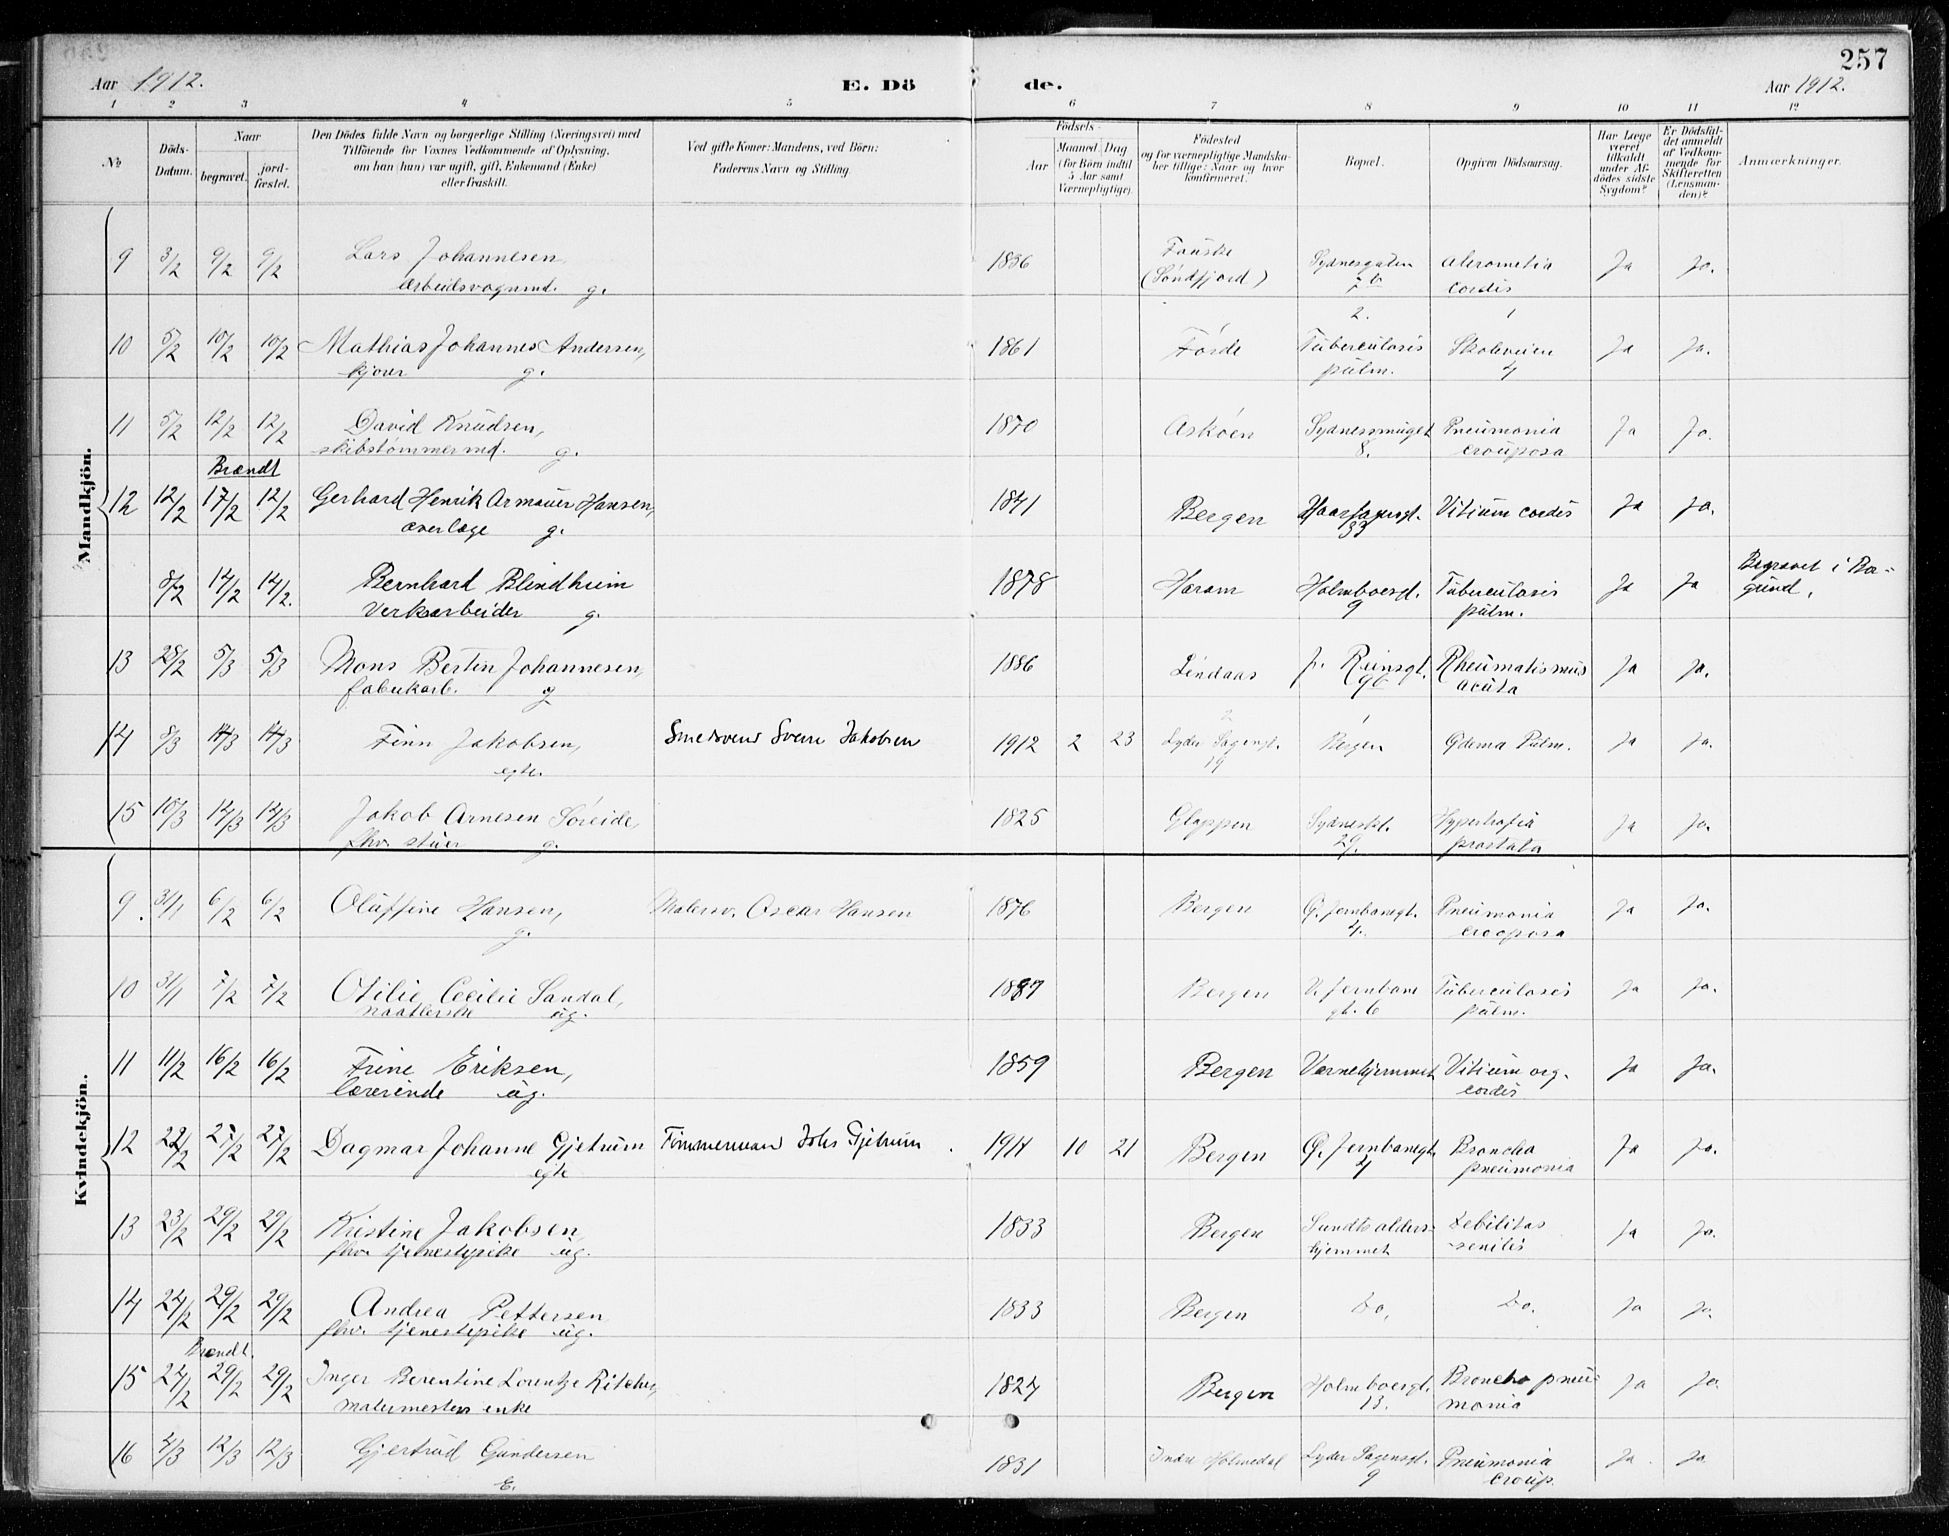 257
Aar 1912.
E. Dö de.
Aar 1912.
1 2 3 4 5 6 7 8 9 10 11 12
№
Döds-Datum.
Naar
begravet.
jord-fæstet.
Den Dödes fulde Navn og borgerlige Stilling (Næringsvei) med
Tilföiende for Voxnes Vedkommende af Oplysning,
om han (hun) var ugift, gift, Enkemand (Enke)
eller fraskilt.
Ved gifte Koner: Mandens, ved Börn:
Faderens Navn og Stilling.
Födsels-
Aar
Maaned. Dag
(for Börn indtil
5 Aar samt
Værnepligtige).
Födested
og for værnepligtige Mandska-
ber tillige: Naar og hvor
konfirmeret.
Bopæl.
Opgiven Dödsaarsag.
Har Læge
været
tilkaldt
under Af-
dödes sidste
Sygdom?
Er Dödsfal-
det anmeldt
af Vedkom-
mende for
Skifteretten
(Lensman-
den)?
Anmærkninger.
Mandkjön.
9 3/2 9/2 9/2 Lars Johannesen 1836 Fauske Sydnesgaten cordis Ja Ja.
arbeidsvognmd. g. (Söndfjord)
2. 1
10 5/2 10/2 10/2 Mathias Johannes Andersen, 1861 Förde Tuberculosis Skoleveien Ja Ja.
kjører g. pulm. 4
11 5/2 12/2 12/2 David Knudsen, 1870 Askøen Sydnessmuget Pneumonia Ja Ja.
skibstømmermd. g. 8. crouposa
Brændt
12 12/2 17/2 12/2 Gerhard Henrik Armauer Hansen, 1841 Bergen Haarfagersgt. Vitium cordis Ja Ja.
overlæge g. 33
8/2 14/2 14/2. Bernhard Blindheim 1878 Haram Holmboesgt. Tuberculosis Ja Ja Begravet i Bo-
Verksarbeider g. 9 pulm. gund.
13 28/2 5/3 5/3 Mons Bertin Johannesen, 1886 Lindaas Reinsgt. Rheumatismus Ja Ja.
fabrikarb. g 9b acuta
14 8/3 14/3 14/3 Finn Jakobsen, Smedsvend Svein Jakobsen 1912 2 23 Lyder Sagensgt. Bergen Pulm. Ja Ja.
egte. 19
15 10/3 14/3 14/3 Jakob Arnesen Søreide, 1825 Gloppen Sydneskl. Hypertrofia Ja Ja.
fhv. stuer g. 29. prostata
Kvindekjön.
9. 31/1 6/2 6/2 Oluffine Hansen, Malersv. Oscar Hansen 1876 Bergen Ø. Jernbanegt. Pneumonia Ja Ja.
g. 4. crouposa
10 31/1 7/2 7/2 Otilie Cecilie Sandal, 1887 Bergen V. Jernbane Tuberculosis Ja Ja.
ug. gt. 6 pulm.
11 11/2 16/2 16/2 Trine Eriksen, 1859 Bergen Værnehjemmet Vitium org. Ja Ja.
lærerinde ug. cordis
12 22/2 27/2 27/2 Dagmar Johanne Gjetrum Tømmermand Johs Gjetrum 1911 10 21 Bergen Ø. Jernbanegt. Broncho Ja Ja.
egte 4 pneumonia
13 23/2 29/2 29/2 Kristine Jakobsen, 1833 Bergen Sundts alders- Debilitas Ja Ja.
fhv. tjenestepike ug. hjemmet senilis
14 24/2 29/2 29/2 Andrea Pettersen 1833 Bergen Do. Do. Ja Ja.
fhv. tjenestepike ug.
Brændt.
15 24/2 29/2 29/2 Inger Berentine Lorentze 1827 Bergen Holmboesgt. Broncho pneu- Ja Ja
malermesters enke 13. monia
16 4/3 12/3 12/3 Gjertrud Gundersen 1831 Indre Holmedal Lyder Sagensgt. Pneumonia Ja Ja
E. 9 croup.